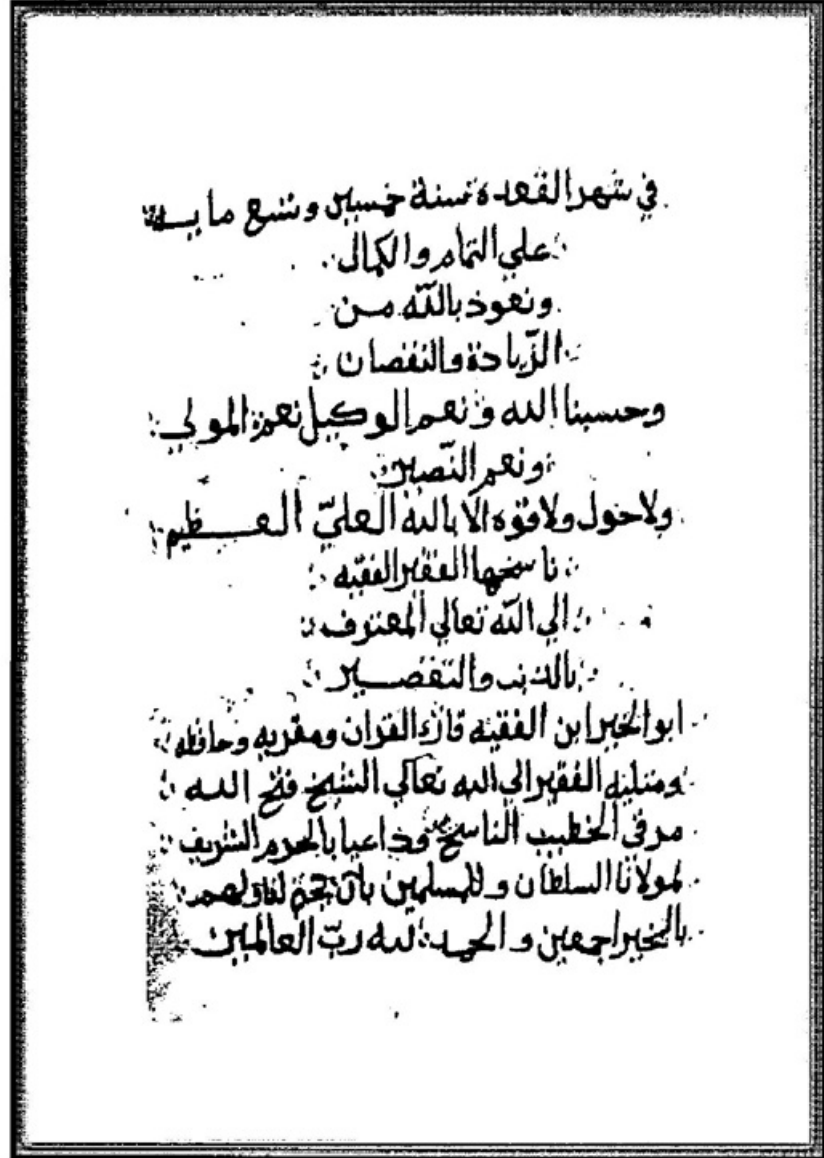 في شهر القعدة سنة خمسين وتسع مايـة
علي التمام والكمال
ونعوذ بالله مـن
الزّيادة والنقصان
وحسبنا الله ونعم الوكيل نعم المولي
ونعم النّصير
ولا حول ولا قوة الا بالله العليّ العـظيم
ناسخها الفقير الفقيه
الي الله تعالي المعترف
بالذنب والتقصـير
ابو الخير ابن الفقيه قارئ القران ومقريه وحافظه
الفقير الي الله تعالي الشيخ فتح الله
مرقي الخطيب الناسخ وداعيا بالحرم الشريف
لمولانا السلطان وللمسلمين بان يختم لنا ولهم
بالخير اجمعين والحمد لله ربّ العالمين